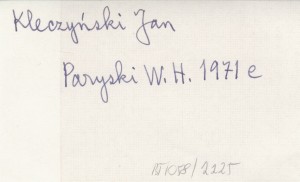 Kleczyński Jan
Paryski W. H. 1971 e
IV 1078/2225